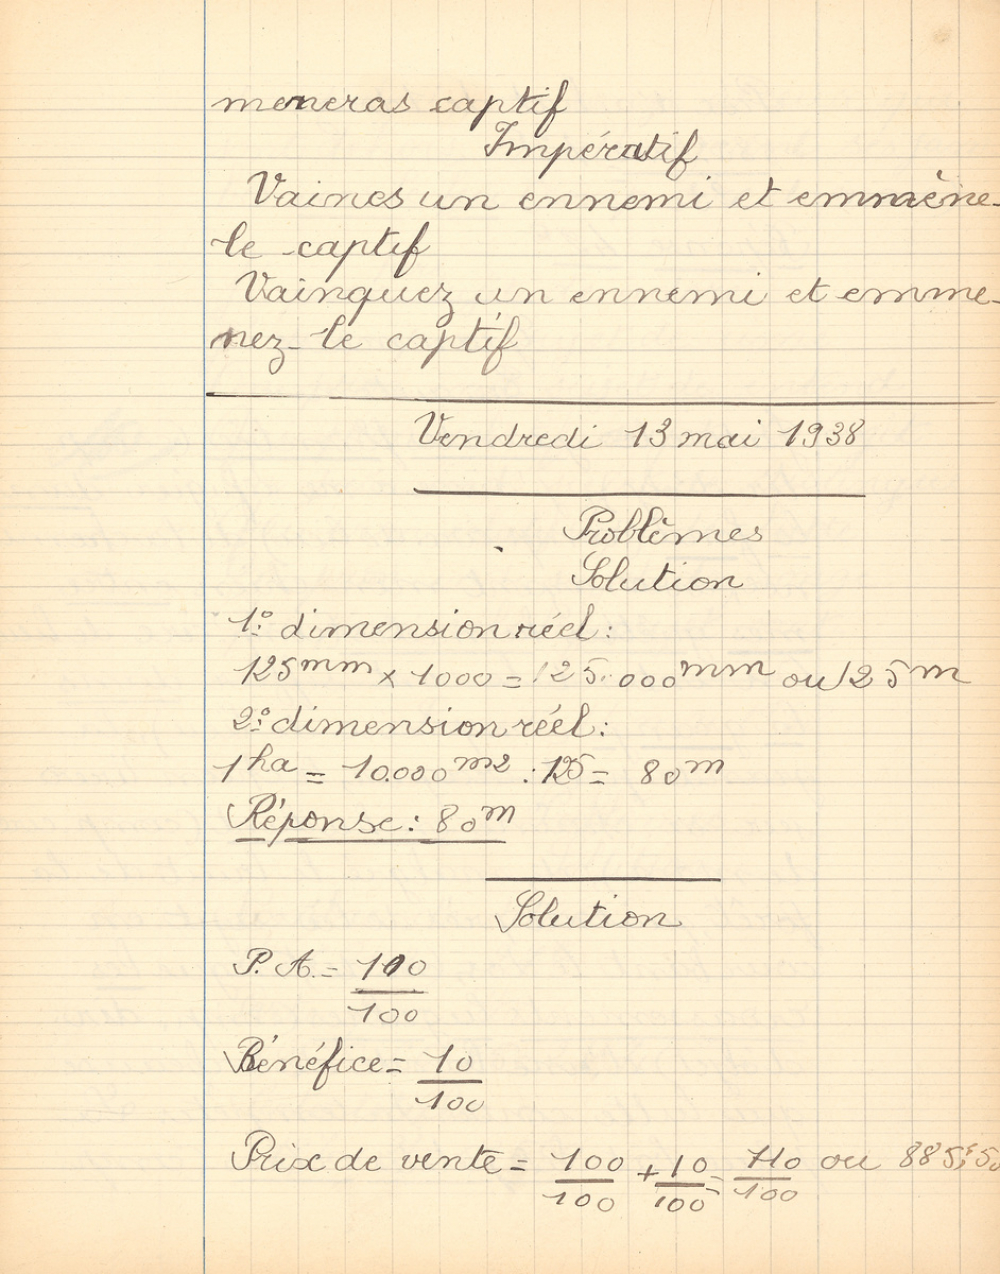 meneras captif
Impératif
Vaincs un ennemi et emmène-
le captif
Vainquez un ennemi et emme-
nez-le captif
Vendredi 13 mai 1938
Problèmes
Solution
1º: dimension réel:
125 mm x 1000 = 125.000 mm ou 125 m
2º: dimension réel:
1 ha = 10.000 m2 : 125 = 80 m
Réponse: 80 m
Solution
P. A. = 100/100
Bénéfice = 10/100
Prix de vente = 100/100 + 10/100 = 110/100 ou 885,50